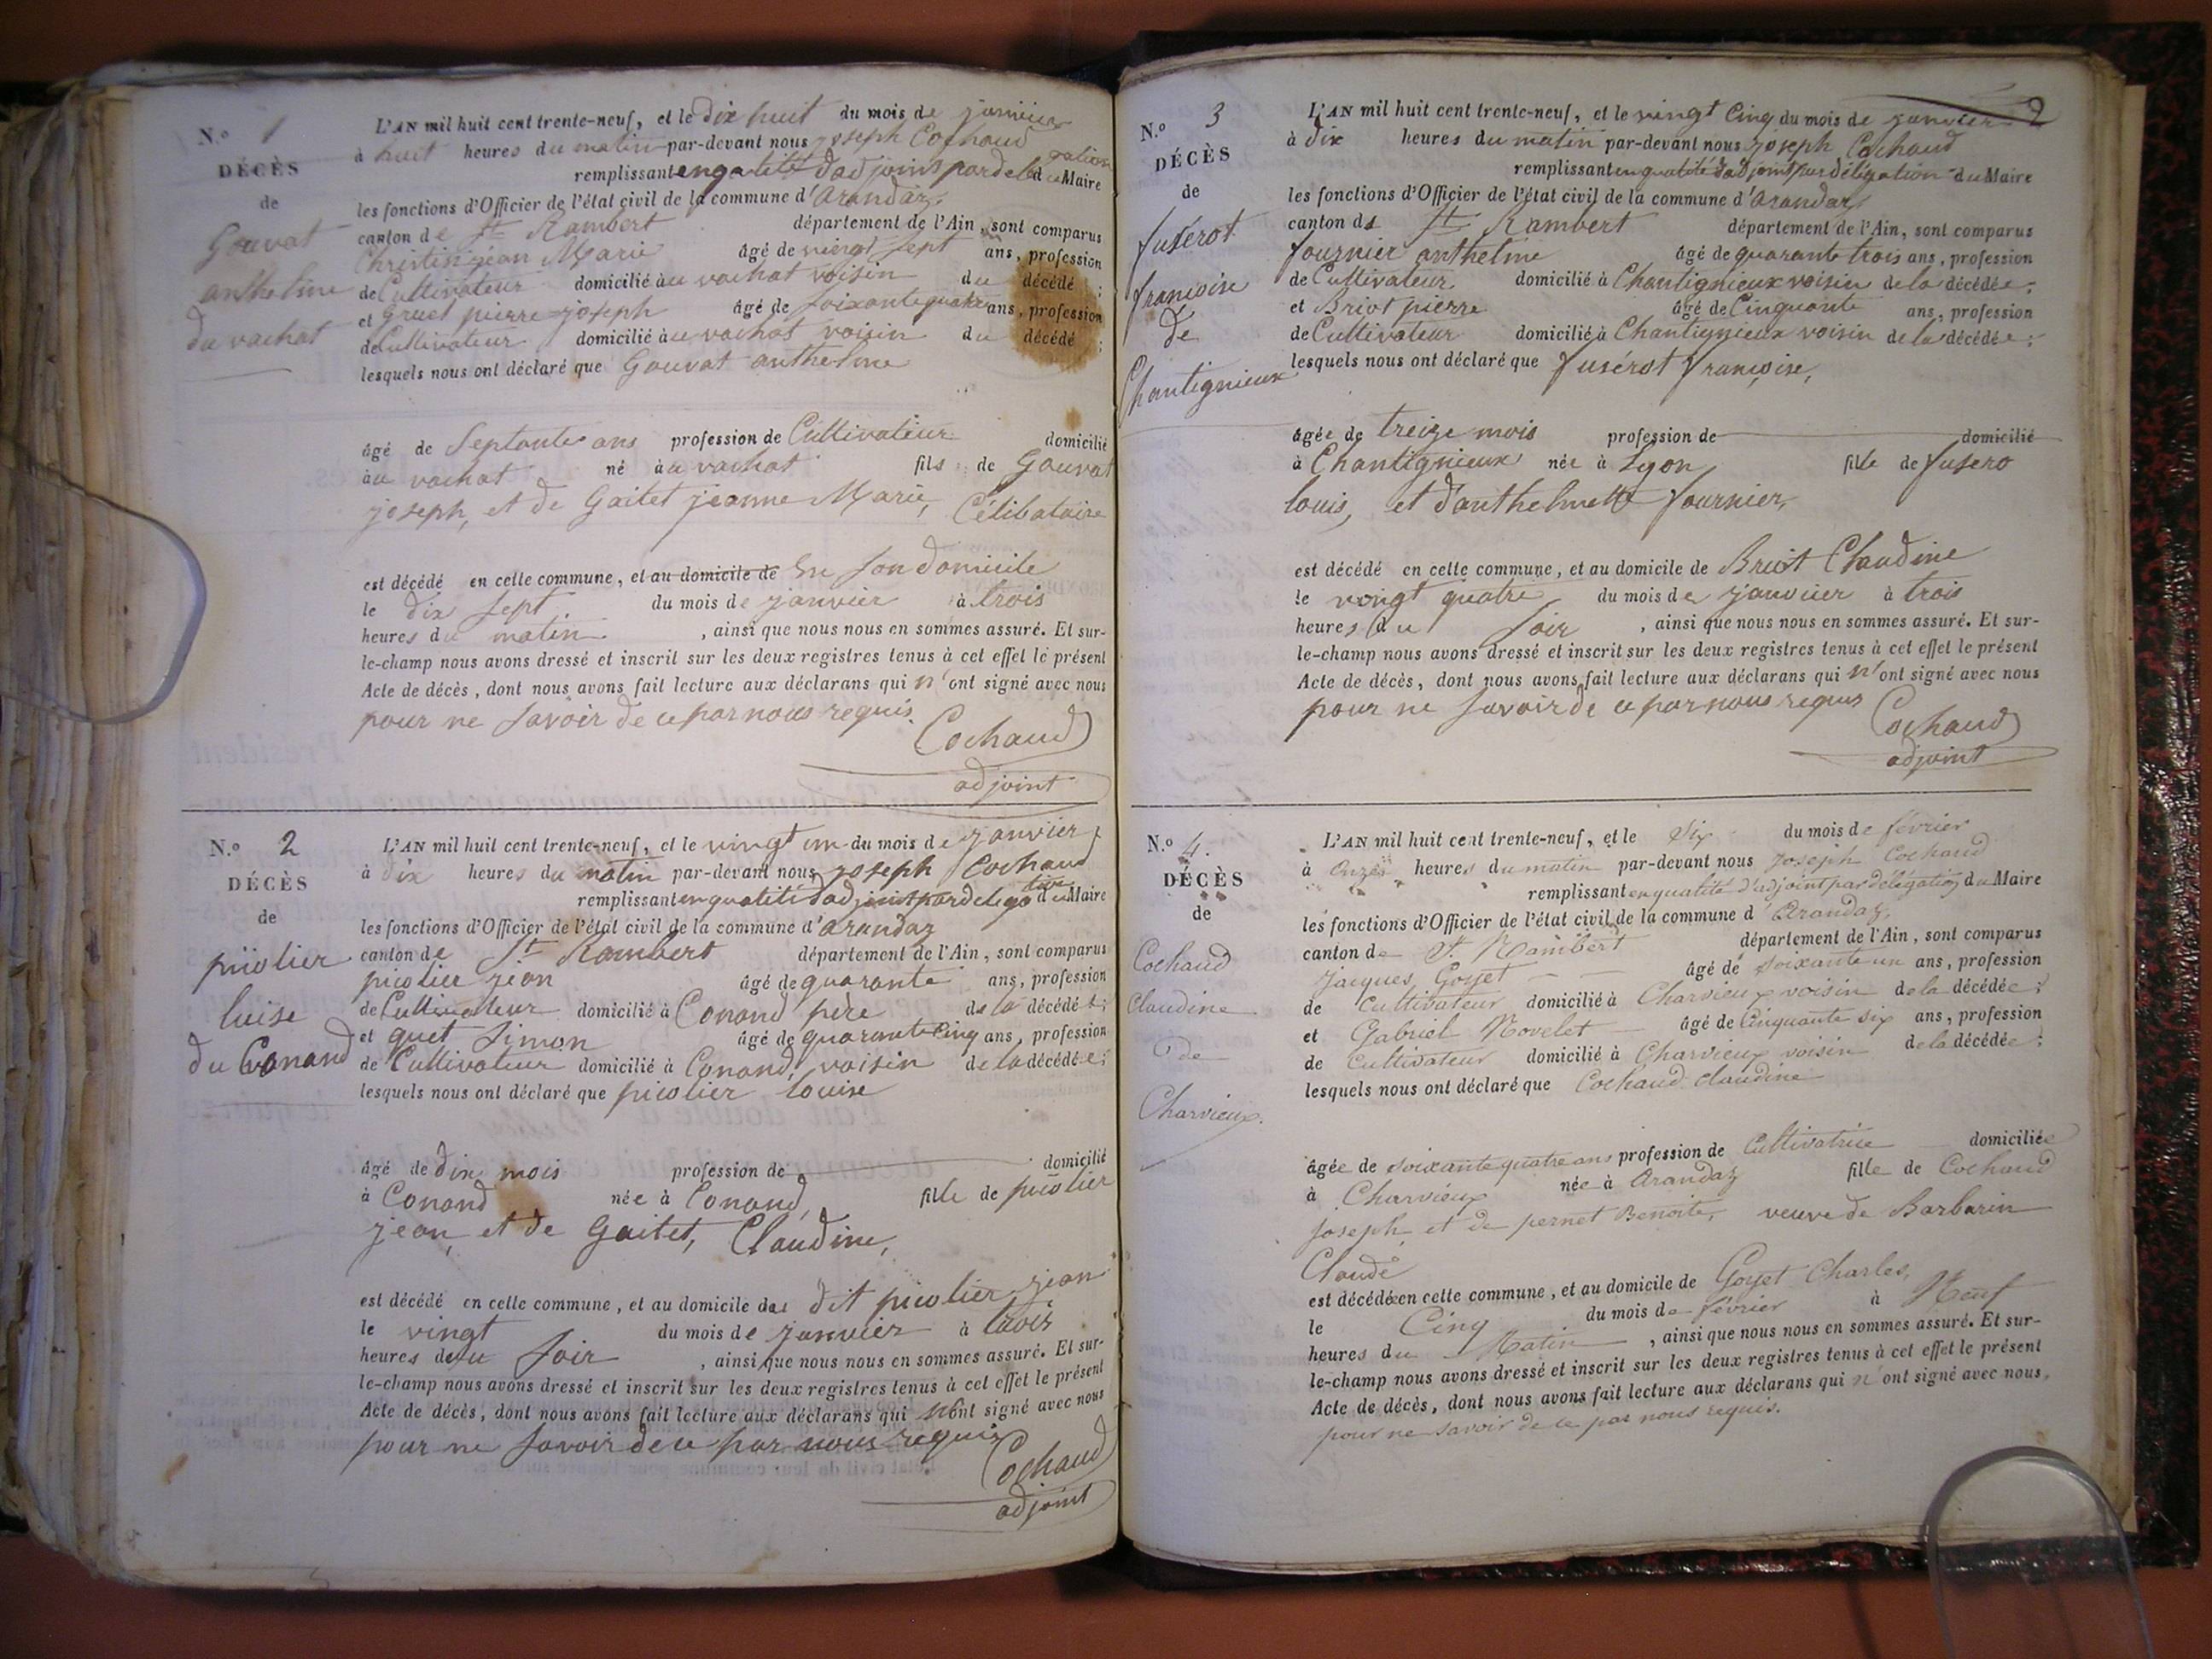 N.o 1
DÉCÈS
de
Gouvat
anthelme
du vachat
L'AN mil huit cent trente-neuf, et le dix huit du mois de janvier
à huit heures du matin par-devant nous joseph Cochaud
remplissant en qualité d'adjoint par délégation du Maire
les fonctions d'Officier de l'état civil de la commune d'arandaz
canton de St Rambert département de l'Ain, sont comparus
Christin jean Marie âgé de vingt sept ans, profession
de Cultivateur domicilié au vachat voisin du décédé ;
et gruet pierre joseph âgé de soixante quatre ans, profession
de Cultivateur domicilié au vachat voisin du décédé ;
lesquels nous ont déclaré que Gouvat anthelme
âgé de Septante ans profession de Cultivateur domicilié
au vachat né au vachat fils de Gouvat
joseph, et de Gaitet jeanne Marie, Célibataire
est décédé en cette commune, et au domicile de En son domicile
le dix sept du mois de janvier à trois
heures du matin , ainsi que nous nous en sommes assuré. Et sur-
le-champ nous avons dressé et inscrit sur les deux registres tenus à cet effet le présent
Acte de décès, dont nous avons fait lecture aux déclarans qui n'ont signé avec nous
pour ne savoir de ce par nous requis.
Cochaud
adjoint
N.o 2
DÉCÈS
de
picolier
luise
du Conand
L'AN mil huit cent trente-neuf, et le vingt un du mois de janvier
à dix heures du matin par-devant nous joseph Cochaud
remplissant en qualité d'adjoint par delegation du Maire
les fonctions d'Officier de l'état civil de la commune d'arandaz
canton de St Rambert département de l'Ain, sont comparus
picolier jean âgé de quarante ans, profession
de Cultivateur domicilié à Conand père de la décédée ;
et quet Simon âgé de quarante cinq ans, profession
de Cultivateur domicilié à Conand, voisin de la décédée ;
lesquels nous ont déclaré que picolier louise
âgé de dix mois profession de domicilié
à Conand née à Conand, fille de picolier
jean, et de Gaitet, Claudine,
est décédé en cette commune, et au domicile du dit picolier jean
le vingt du mois de janvier à trois
heures du soir , ainsi que nous nous en sommes assuré. Et sur-
le-champ nous avons dressé et inscrit sur les deux registres tenus à cet effet le présent
Acte de décès, dont nous avons fait lecture aux déclarans qui n'ont signé avec nous
pour ne savoir de ce par nous requis
Cochaud
adjoint
2
N.o 3
DÉCÈS
de
fusérot
françoise
de
Chantignieux
L'AN mil huit cent trente-neuf, et le vingt Cinq du mois de janvier
à dix heures du matin par-devant nous joseph Cochaud
remplissant en qualité d'adjoint par délégation du Maire
les fonctions d'Officier de l'état civil de la commune d'arandaz
canton de St Rambert département de l'Ain, sont comparus
fournier anthelme âgé de quarante trois ans, profession
de Cultivateur domicilié à Chantignieux voisin de la décédée ;
et Briot pierre âgé de Cinquante ans, profession
de Cultivateur domicilié à Chantignieux voisin de la décédée ;
lesquels nous ont déclaré que fusérot françoise,
âgée de treize mois profession de domicilié
à Chantignieux née à Lyon, fille de fusero
louis, et d'anthelmette fournier,
est décédé en cette commune, et au domicile de Briot Claudine
le vingt quatre du mois de janvier à trois
heures du soir , ainsi que nous nous en sommes assuré. Et sur-
le-champ nous avons dressé et inscrit sur les deux registres tenus à cet effet le présent
Acte de décès, dont nous avons fait lecture aux déclarans qui n'ont signé avec nous
pour ne savoir de ce par nous requis
Cochaud
adjoint
N.o 4.
DÉCÈS
de
Cochaud
Claudine
de
Charvieux.
L'AN mil huit cent trente-neuf, et le Six du mois de février
à onze heures du matin par-devant nous Joseph Cochaud
remplissant en qualité d'adjoint par délégation du Maire
les fonctions d'Officier de l'état civil de la commune d'Arandaz,
canton de St. Rambert département de l'Ain, sont comparus
Jacques Goyet âgé de soixante un ans, profession
de Cultivateur domicilié à Charvieux voisin de la décédée ;
et Gabriel Novelet âgé de Cinquante six ans, profession
de Cultivateur domicilié à Charvieux voisin de la décédée ;
lesquels nous ont déclaré que Cochaud Claudine
âgée de soixante quatre ans profession de Cultivatrice domiciliée
à Charvieux née à Arandaz fille de Cochaud
Joseph, et de pernet Benoite, veuve de Barbarin
Claude
est décédée en cette commune, et au domicile de Goyet Charles,
le Cinq du mois de février à Neuf
heures du Matin , ainsi que nous nous en sommes assuré. Et sur-
le-champ nous avons dressé et inscrit sur les deux registres tenus à cet effet le présent
Acte de décès, dont nous avons fait lecture aux déclarans qui n'ont signé avec nous,
pour ne savoir de ce par nous requis.